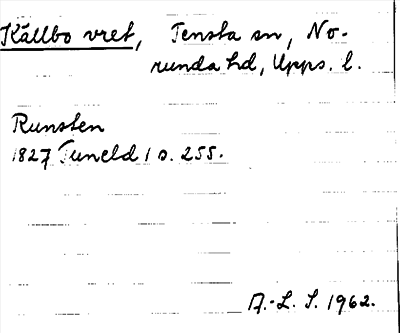 Källbo vret, Tensta sn, No-
runda hd, Upps. l.
Runsten
1827 Tuneld 1 s. 255.
A.-L. S. 1962.